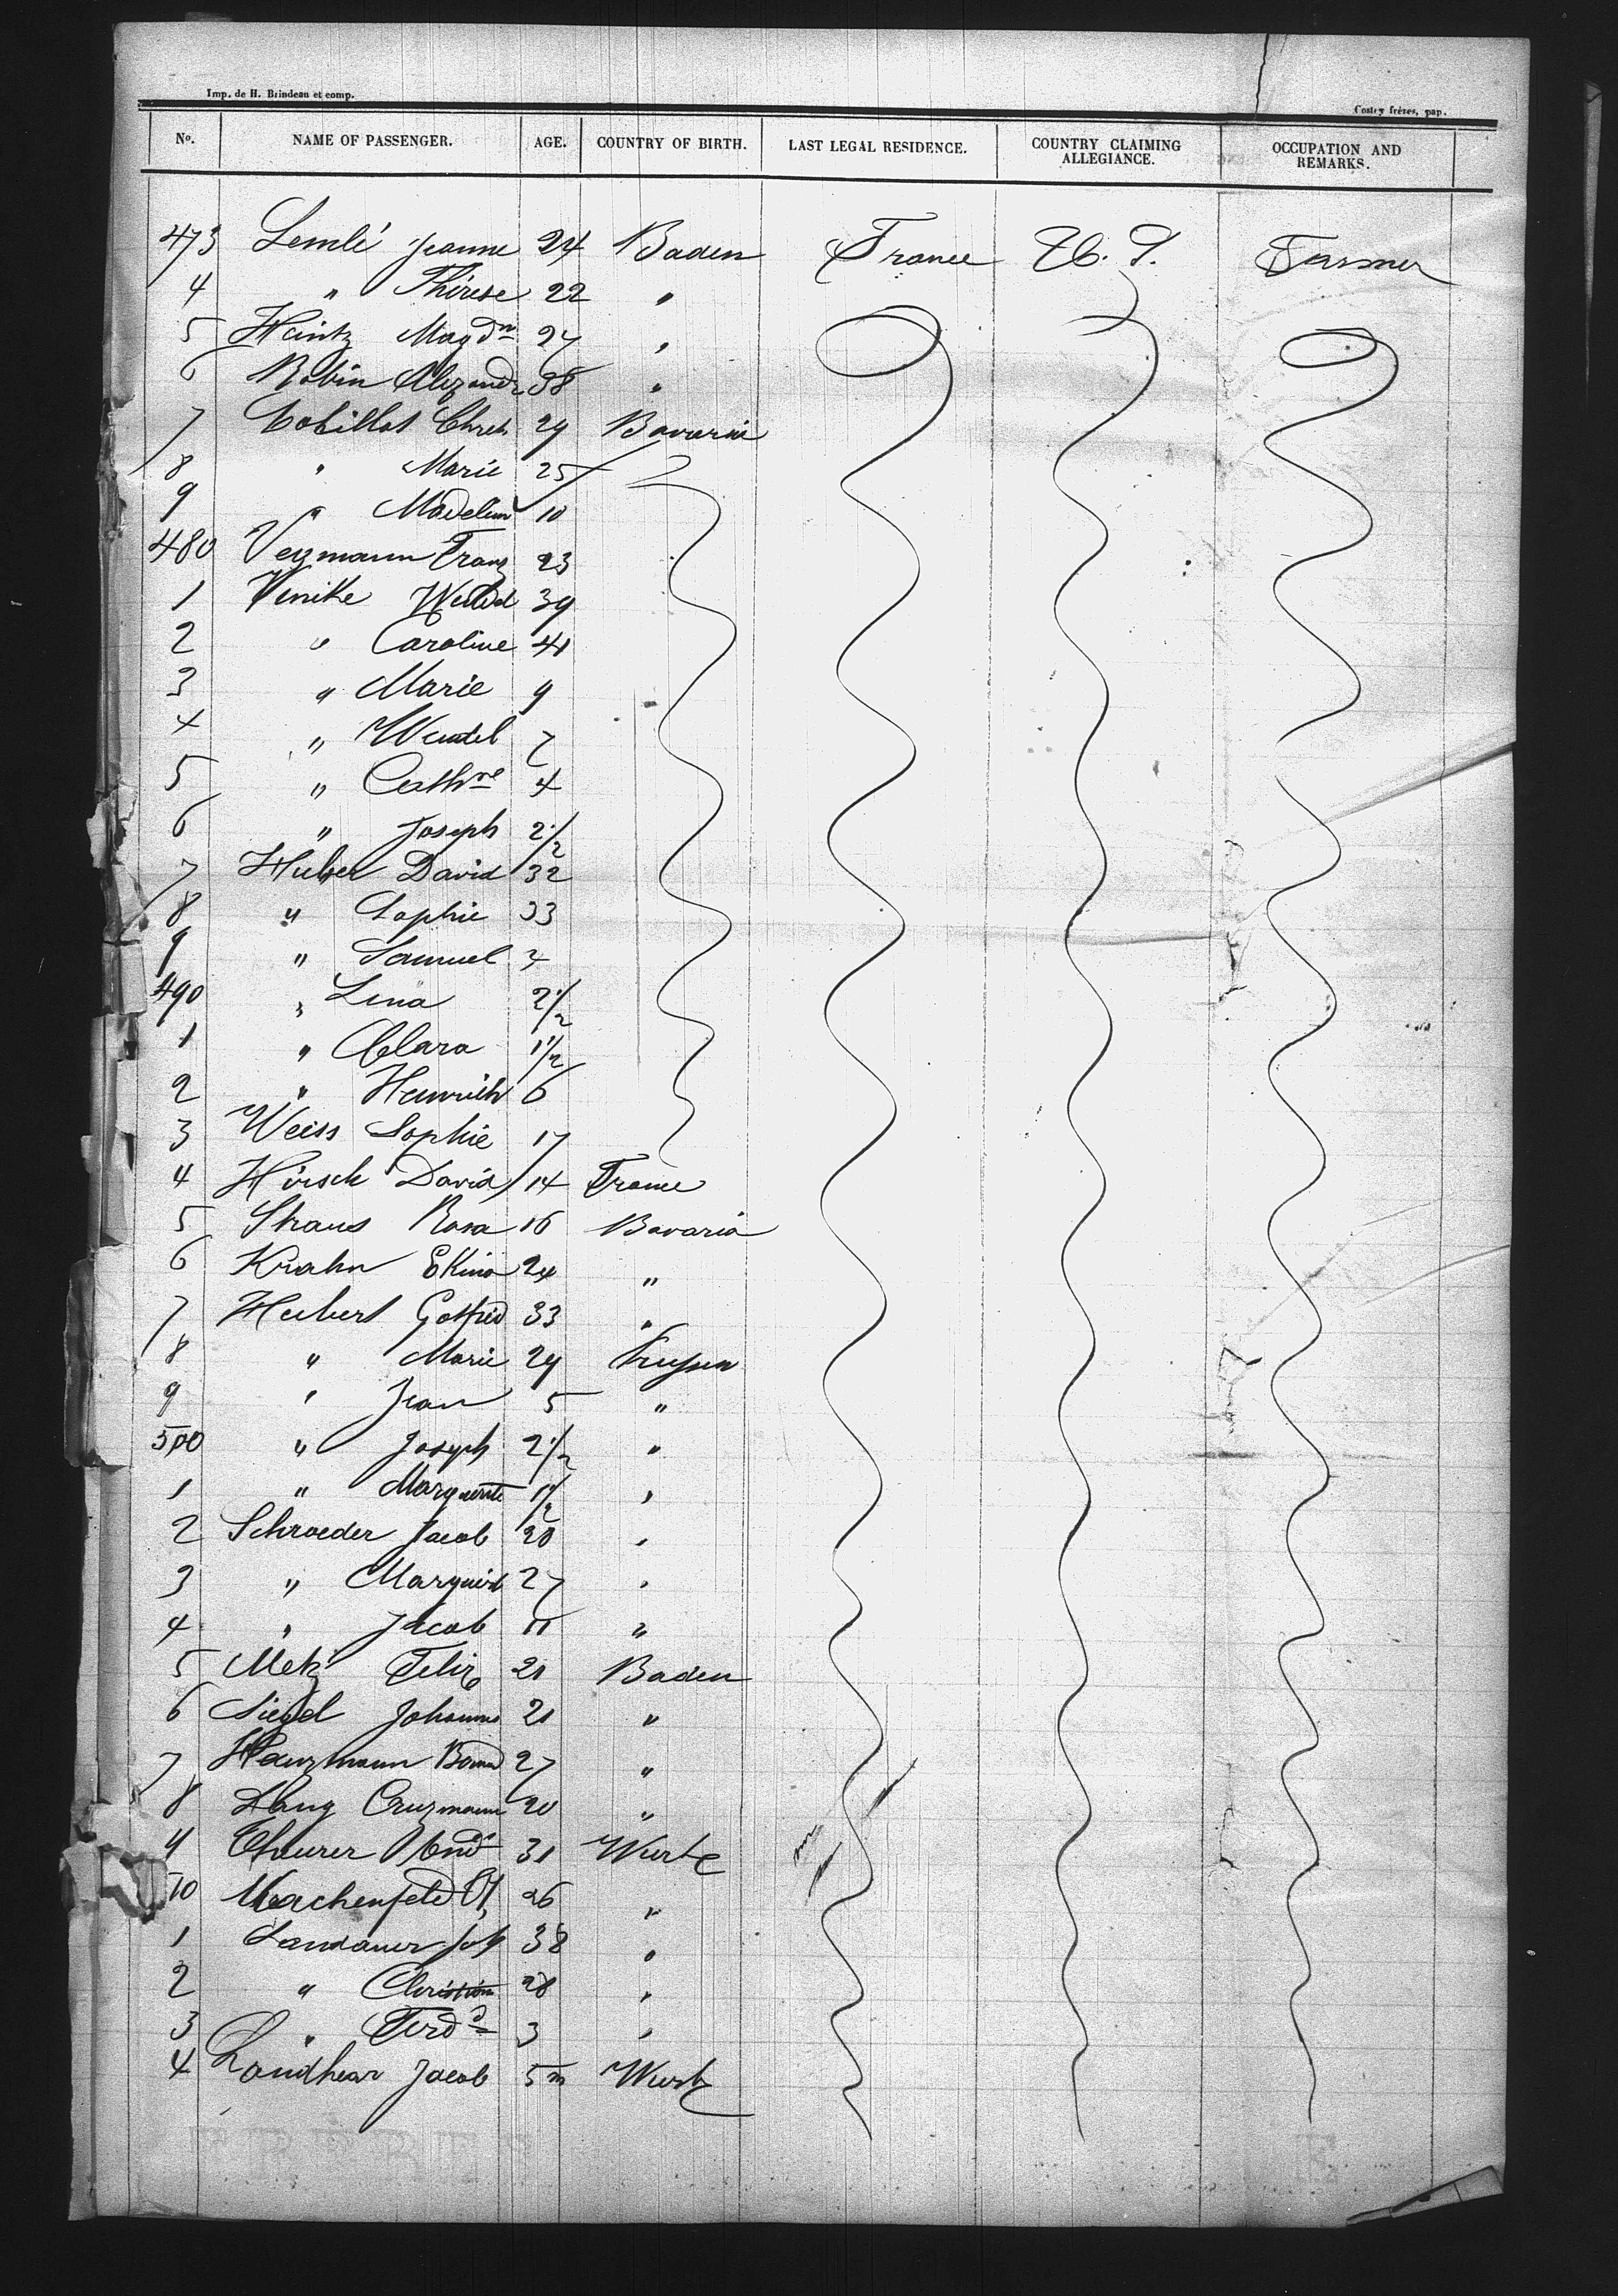 Imp. de H. Brindeau et comp.
Costey frères, pap.
No. NAME OF PASSENGER. AGE. COUNTRY OF BIRTH. LAST LEGAL RESIDENCE. COUNTRY CLAIMING ALLEGIANCE. OCCUPATION AND REMARKS.
473 Lemlé Jeanne 24 Baden France U. S. Farmer
4 " Thérese 22 "
5 Heintz Magdne 27 "
6 Robin Alexandr 38 "
7 Cobillot Chreh 29 Bavaria
8 " Marie 25
9 " Madelin 10
480 Veymann Franz 23
1 Vinike Wendel 39
2 " Caroline 41
3 " Marie 9
4 " Wendel 7
5 " Cathne 4
6 " Joseph 2 1/2
7 Huber David 32
8 " Sophie 33
9 " Samuel 4
490 " Lina 2 1/2
1 " Clara 1 1/2
2 " Heinrich 6
3 Weiss Sophie 17
4 Hirsch David 14 France
5 Straus Rosa 16 Bavaria
6 Krahn 24 "
7 Hubert Gotfried 33 "
8 " Marie 29
9 " Jean 5 "
500 " Joseph 2 1/2 "
1 " Marguerite 1 1/2 "
2 Schroeder Jacob 28 "
3 " Marguerit 27 "
4 " Jacob 11 "
5 Metz Felix 21 Baden
6 Siegel Johanns 21 "
7 Hanzmann 27 "
8 Lang 20 "
9 Theurer And 31 Wurtz
10 26 "
1 Landauer Jos 38 "
2 " Christian 28 "
3 " Ferdd 3 "
4 Jacob 5 m Wurtz